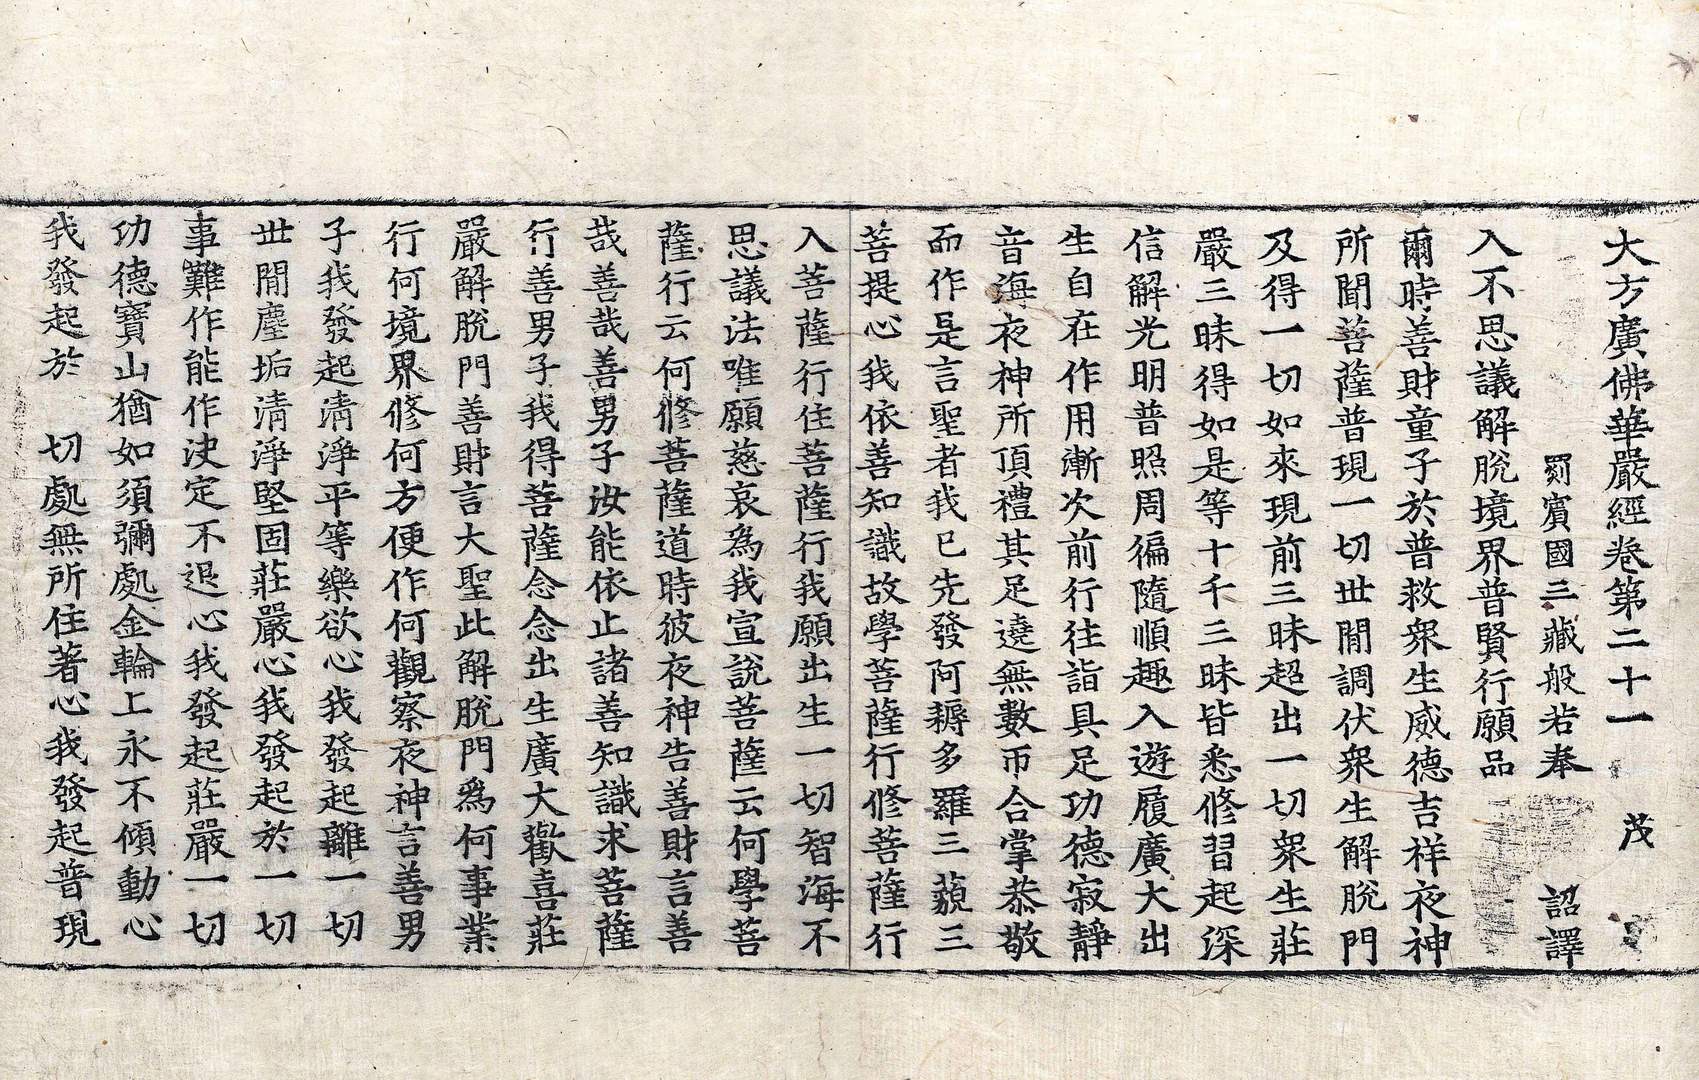 大方廣佛華嚴經卷第二十一 茂
罽賓國三藏般若奉 詔譯
入不思議解脫境界普賢行願品
爾時善財童子於普救衆生威德吉祥夜神
所聞菩薩普現一切世間調伏衆生解脫門
及得一切如來現前三昧超出一切衆生莊
嚴三昧得如是等十千三昧皆悉修習起深
信解光明普照周徧隨順趣入遊履廣大出
生自在作用漸次前行往詣具足功德寂靜
音海夜神所頂禮其足遶無數帀合掌恭敬
而作是言聖者我已先發阿耨多羅三藐三
菩提心我依善知識故學菩薩行修菩薩行
入菩薩行住菩薩行我願出生一切智海不
思議法唯願慈哀為我宣說菩薩云何學菩
薩行云何修菩薩道時彼夜神告善財言善
哉善哉善男子汝能依止諸善知識求菩薩
行善男子我得菩薩念念出生廣大歡喜莊
嚴解脫門善財言大聖此解脫門爲何事業
行何境界修何方便作何觀察夜神言善男
子我發起清淨平等樂欲心我發起離一切
世間塵垢清淨堅固莊嚴心我發起於一切
事難作能作決定不退心我發起莊嚴一切
功德寶山猶如須彌處金輪上永不傾動心
我發起於 切處無所住著心我發起普現